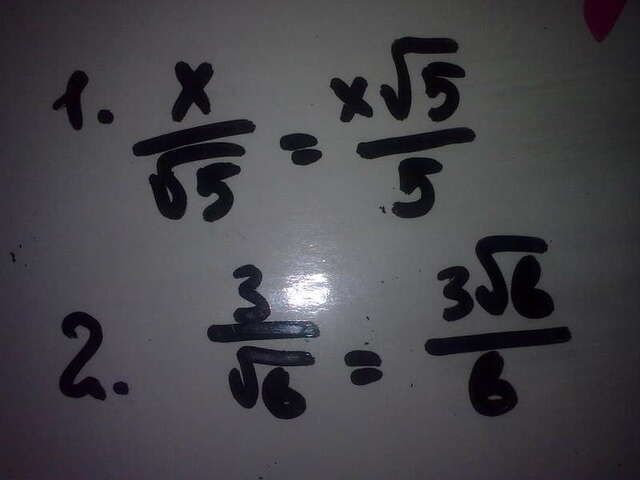 1. x/√5 = x√5/5
2. 3/√6 = 3√6/6